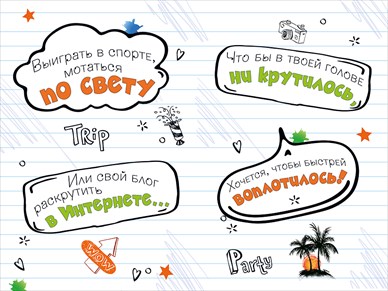 Выиграть в спорте,
мотаться
по свету
Что бы в твоей голове
ни крутилось,
Trip
Или свой блог
раскрутить
в Интернете...
Хочется, чтобы быстрей
воплотилось!
WOW
Party